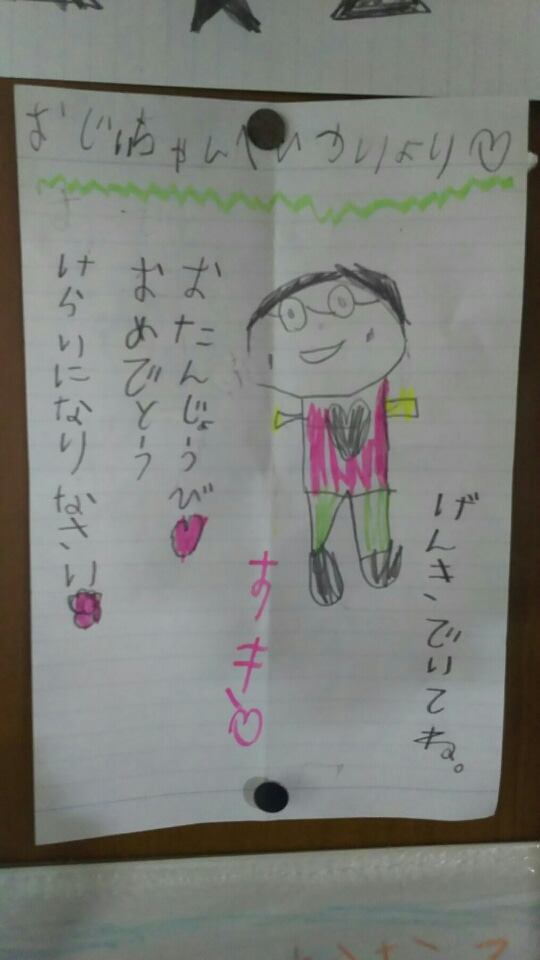 おじいちゃんへ ひかりより♡
げんきでいてね。
すき♡
おたんじょうび♥
おめでとう
けらいになりなさい